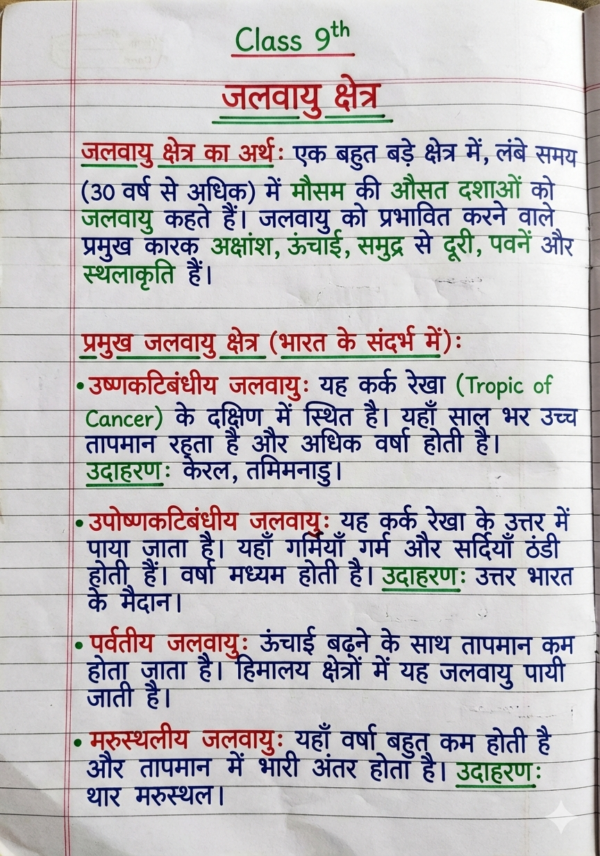 Class 9th
जलवायु क्षेत्र
जलवायु क्षेत्र का अर्थ: एक बहुत बड़े क्षेत्र में, लंबे समय
(30 वर्ष से अधिक) में मौसम की औसत दशाओं को
जलवायु कहते हैं। जलवायु को प्रभावित करने वाले
प्रमुख कारक अक्षांश, ऊंचाई, समुद्र से दूरी, पवनें और
स्थलाकृति हैं।
प्रमुख जलवायु क्षेत्र (भारत के संदर्भ में):
• उष्णकटिबंधीय जलवायु: यह कर्क रेखा (Tropic of
Cancer) के दक्षिण में स्थित है। यहाँ साल भर उच्च
तापमान रहता है और अधिक वर्षा होती है।
उदाहरण: केरल, तमिमनाडु।
• उपोष्णकटिबंधीय जलवायु: यह कर्क रेखा के उत्तर में
पाया जाता है। यहाँ गर्मियाँ गर्म और सर्दियाँ ठंडी
होती हैं। वर्षा मध्यम होती है। उदाहरण: उत्तर भारत
के मैदान।
• पर्वतीय जलवायु: ऊंचाई बढ़ने के साथ तापमान कम
होता जाता है। हिमालय क्षेत्रों में यह जलवायु पायी
जाती है।
• मरुस्थलीय जलवायु: यहाँ वर्षा बहुत कम होती है
और तापमान में भारी अंतर होता है। उदाहरण:
थार मरुस्थल।